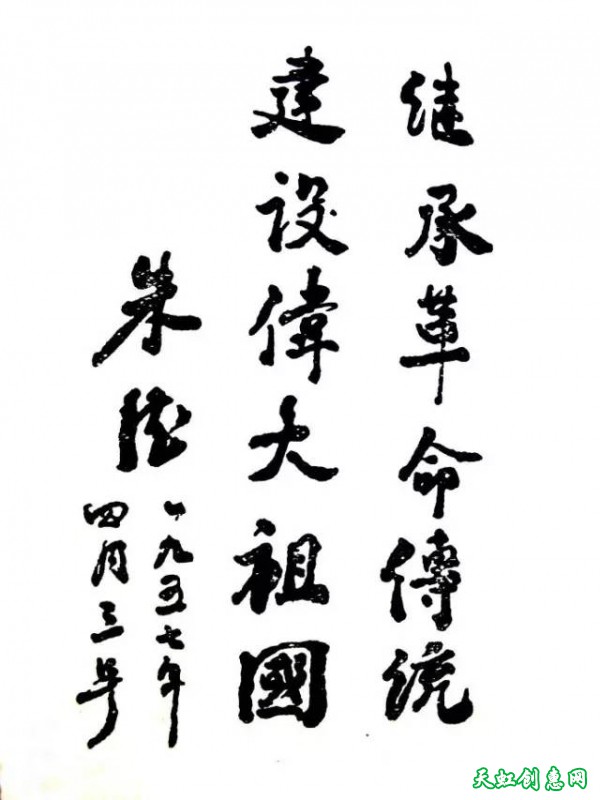 继承革命傳统
建設偉大祖國
朱德
一九五七年
四月三号
天虹创惠网